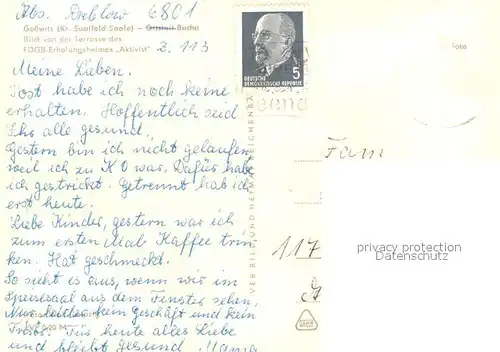 Abs. Dreblow 6801
Goßwitz (Kr. Saalfeld-Saale) — Ortsteil Bucha
Blick von der Terrasse des
FDGB-Erholungsheimes „Aktivist" Z. 113
Foto
5
DEUTSCHE
DEMOKRATISCHE REPUBLIK
Meine Lieben.
Post habe ich noch keine
erhalten. Hoffentlich seid
Ihr alle gesund.
Gestern bin ich nicht gelaufen
weil ich zu K O war. Dafür habe
ich gestrickt. Getrennt hab ich
erst heute.
Liebe Kinder, gestern war ich
zum ersten Mal Kaffee trin
ken. Hat geschmeckt.
So sieht es aus, wenn wir im
Speisesaal aus dem Fenster sehen.
Nur leider kein Geschäft und kein
EVP 0,20 M
Für heute alles Liebe
und bleibt gesund Mama
VEB BILD UND HEIMAT REICHENBA
Fam
117
privacy protection
VARIOUS-PHOTOS